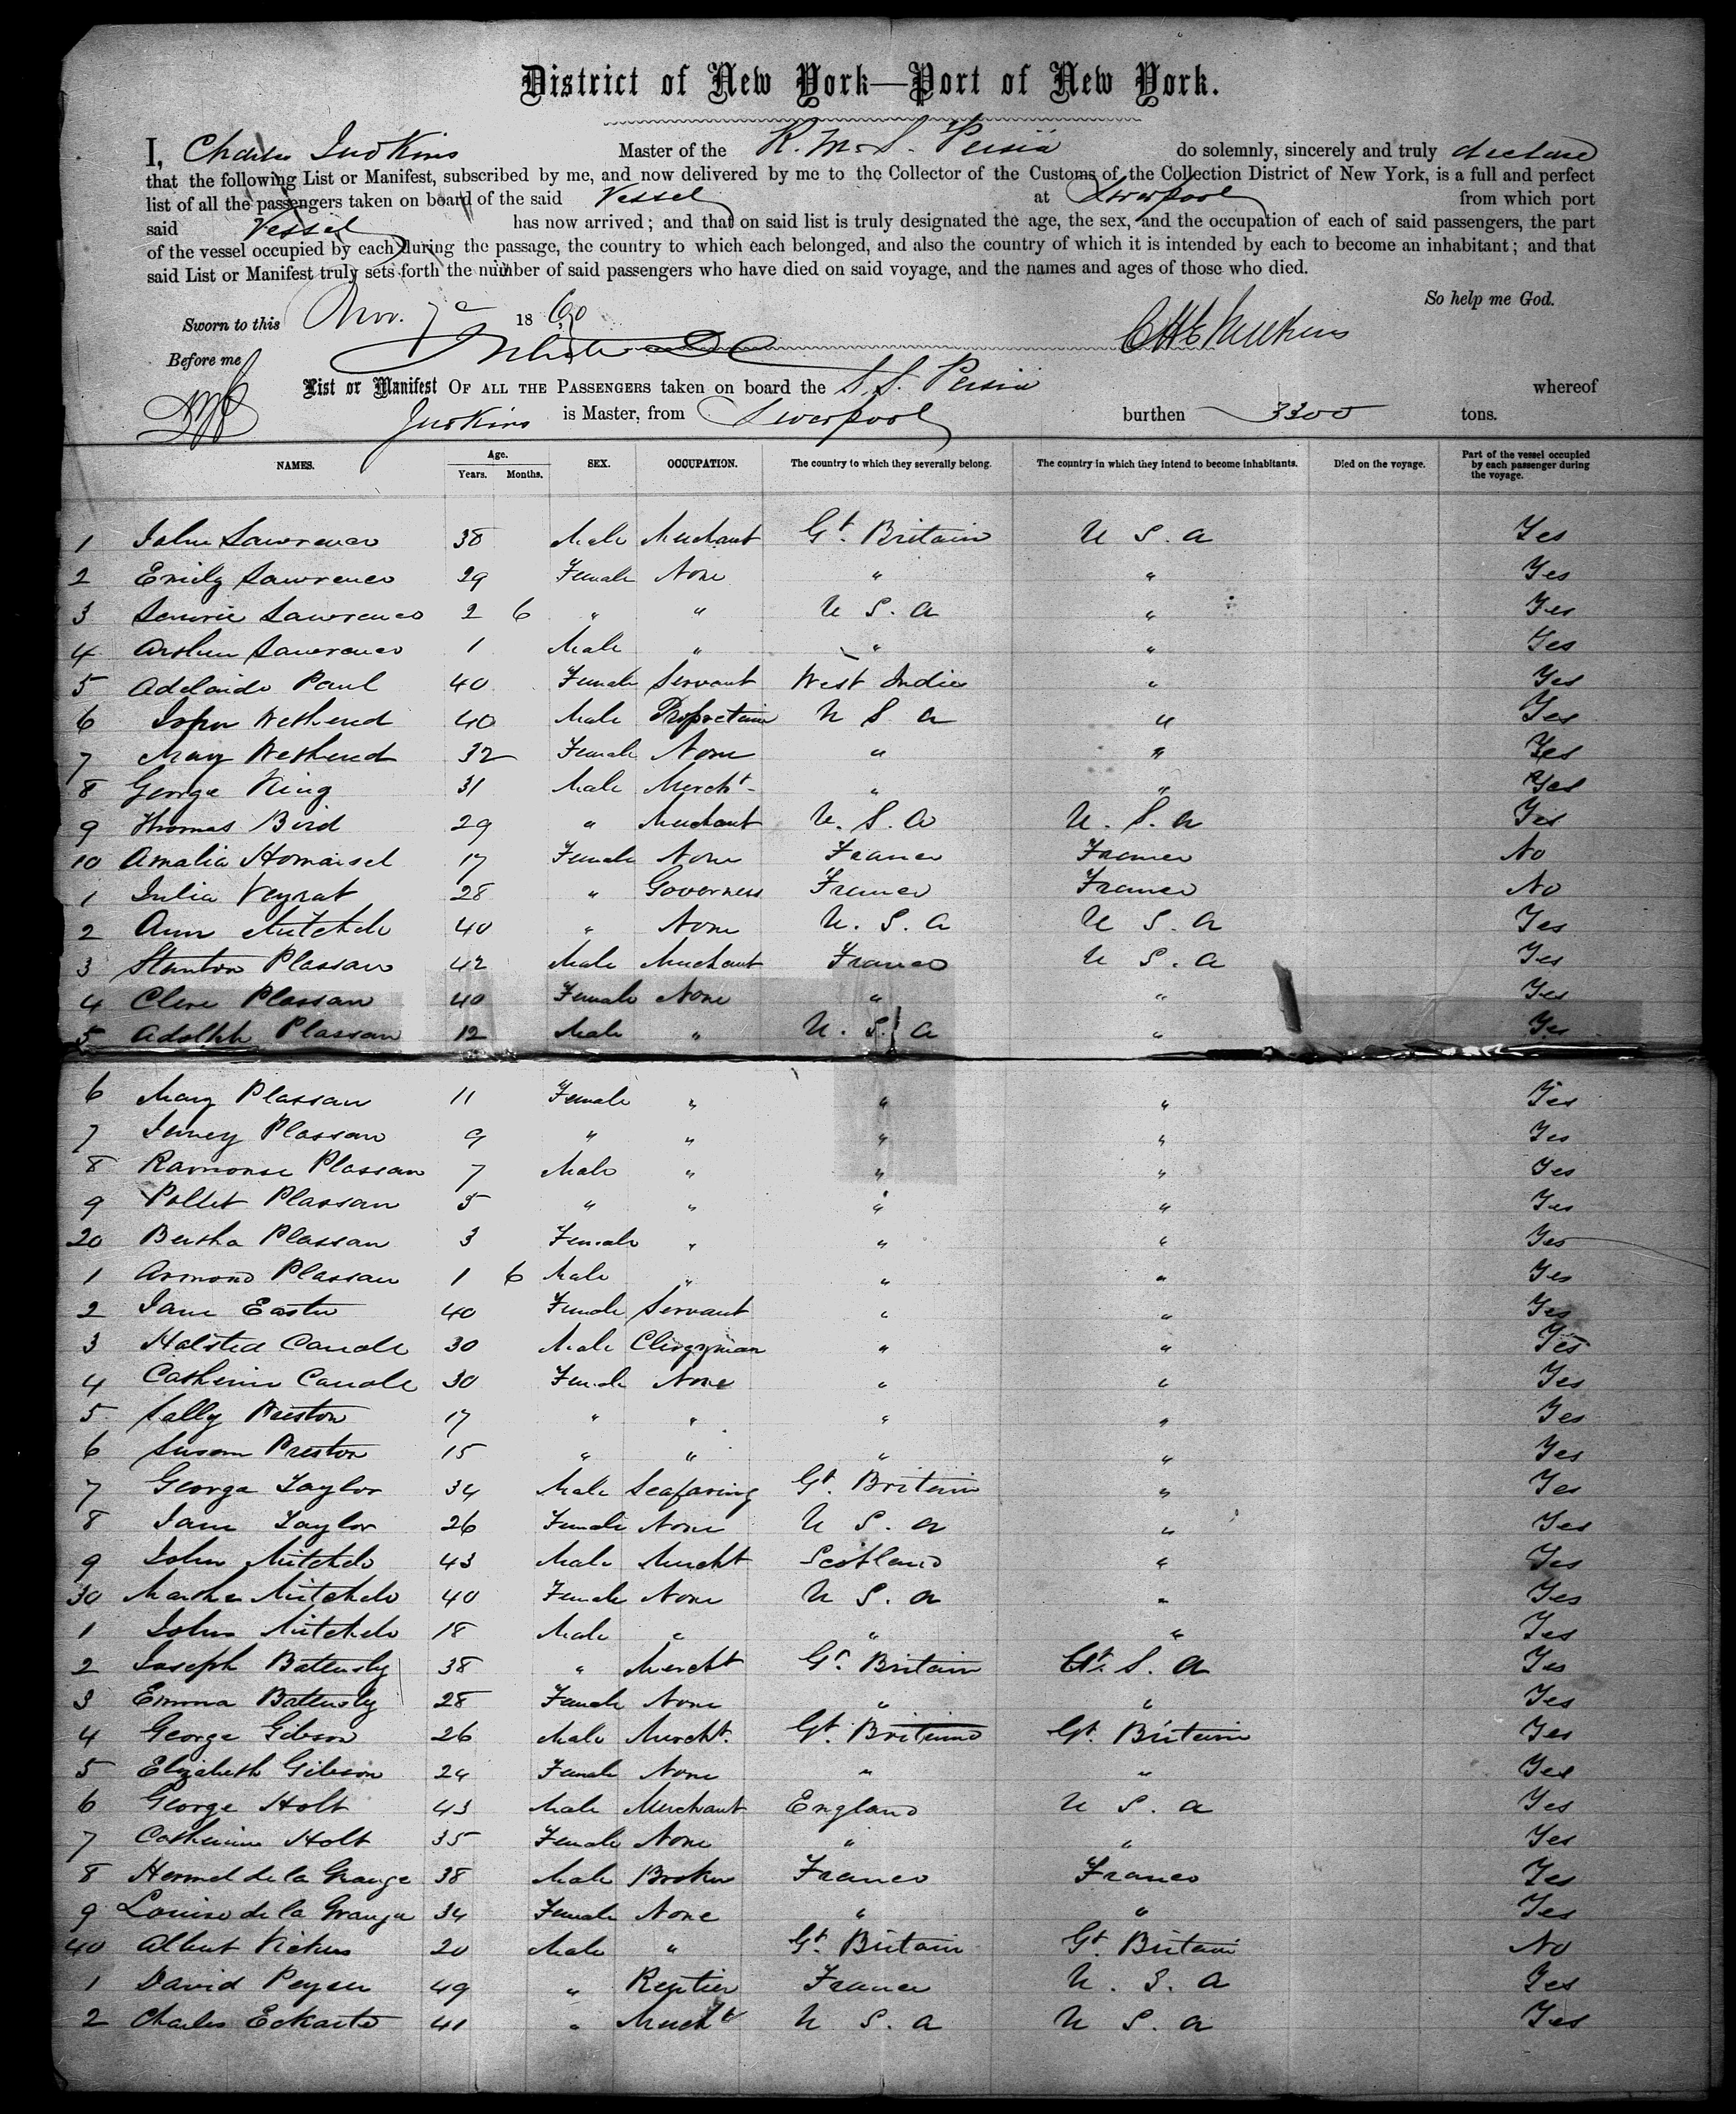 District of New York—Port of New York.
I, Charles Judkins Master of the R. M. S. Persia do solemnly, sincerely and truly declare
that the following List or Manifest, subscribed by me, and now delivered by me to the Collector of the Customs of the Collection District of New York, is a full and perfect
list of all the passengers taken on board of the said Vessel at Liverpool from which port
said Vessel has now arrived; and that on said list is truly designated the age, the sex, and the occupation of each of said passengers, the part
of the vessel occupied by each during the passage, the country to which each belonged, and also the country of which it is intended by each to become an inhabitant; and that
said List or Manifest truly sets forth the number of said passengers who have died on said voyage, and the names and ages of those who died.
So help me God.
Sworn to this Nov. 7 1860
Before me
List or Manifest OF ALL THE PASSENGERS taken on board the S. S. Persia whereof
Judkins is Master, from Liverpool burthen 3300 tons.
NAMES. Age. Years. Months. SEX. OCCUPATION. The country to which they severally belong. The country in which they intend to become inhabitants. Died on the voyage. Part of the vessel occupied by each passenger during the voyage.
1 John Lawrence 38 Male Merchant Gt. Britain U S. A Yes
2 Emily Lawrence 29 Female None " " Yes
3 Lawrence 2 6 " " U S. A " Yes
4 Arthur Lawrence 1 Male " " " Yes
5 Adelaide Paul 40 Female Servant West Indies " Yes
6 John Wetherd 40 Male U S A " Yes
7 Mary Wetherd 32 Female None " " Yes
8 George King 31 Male Mercht. " " Yes
9 Thomas Bird 29 " Merchant U. S. A U. S. A Yes
10 Amalia Homaisel 17 Female None France France No
1 Julia Veyrat 28 " Governess France France No
2 Ann Mitchele 40 " None U. S. A U S. A Yes
3 Stanton Plassan 42 Male Merchant France U S. A Yes
4 Clere Plassan 40 Female None " " Yes
5 Adolph Plassan 12 Male " U. S. A " Yes
6 Mary Plassan 11 Female " " " Yes
7 Plassan 9 " " " " Yes
8 Ramonse Plassan 7 Male " " " Yes
9 Pollet Plassan 5 " " " " Yes
20 Bertha Plassan 3 Female " " " Yes
1 Armond Plassan 1 6 Male " " " Yes
2 Jane Easter 40 Female Servant " " Yes
3 Halsted Caudle 30 Male Clergyman " " Yes
4 Catherine Caudle 30 Female None " " Yes
5 Sally Preston 17 " " " " Yes
6 Susan Preston 15 " " " " Yes
7 George Taylor 34 Male Seafaring Gt. Britain " Yes
8 Jane Taylor 26 Female None U S. A " Yes
9 John Mitchele 43 Male Mercht Scotland " Yes
30 Martha Mitchele 40 Female None U S. A " Yes
1 John Mitchele 18 Male " " " Yes
2 Joseph Battersby 38 " Mercht Gt. Britain U. S. A Yes
3 Emma Battersby 28 Female None " " Yes
4 George Gibson 26 Male Mercht. Gt. Britain Gt. Britain Yes
5 Elizabeth Gibson 24 Female None " " Yes
6 George Holt 43 Male Merchant England U S. A Yes
7 Catherine Holt 35 Female None " " Yes
8 Hermel de la Grange 38 Male Broker France France Yes
9 Louise de la Grange 34 Female None " " Yes
40 Albert Vickers 20 Male " Gt. Britain Gt. Britain No
1 David Peyser 49 " Rentier France U. S. A Yes
2 Charles Eckarte 41 " Mercht U S. A U S. A Yes